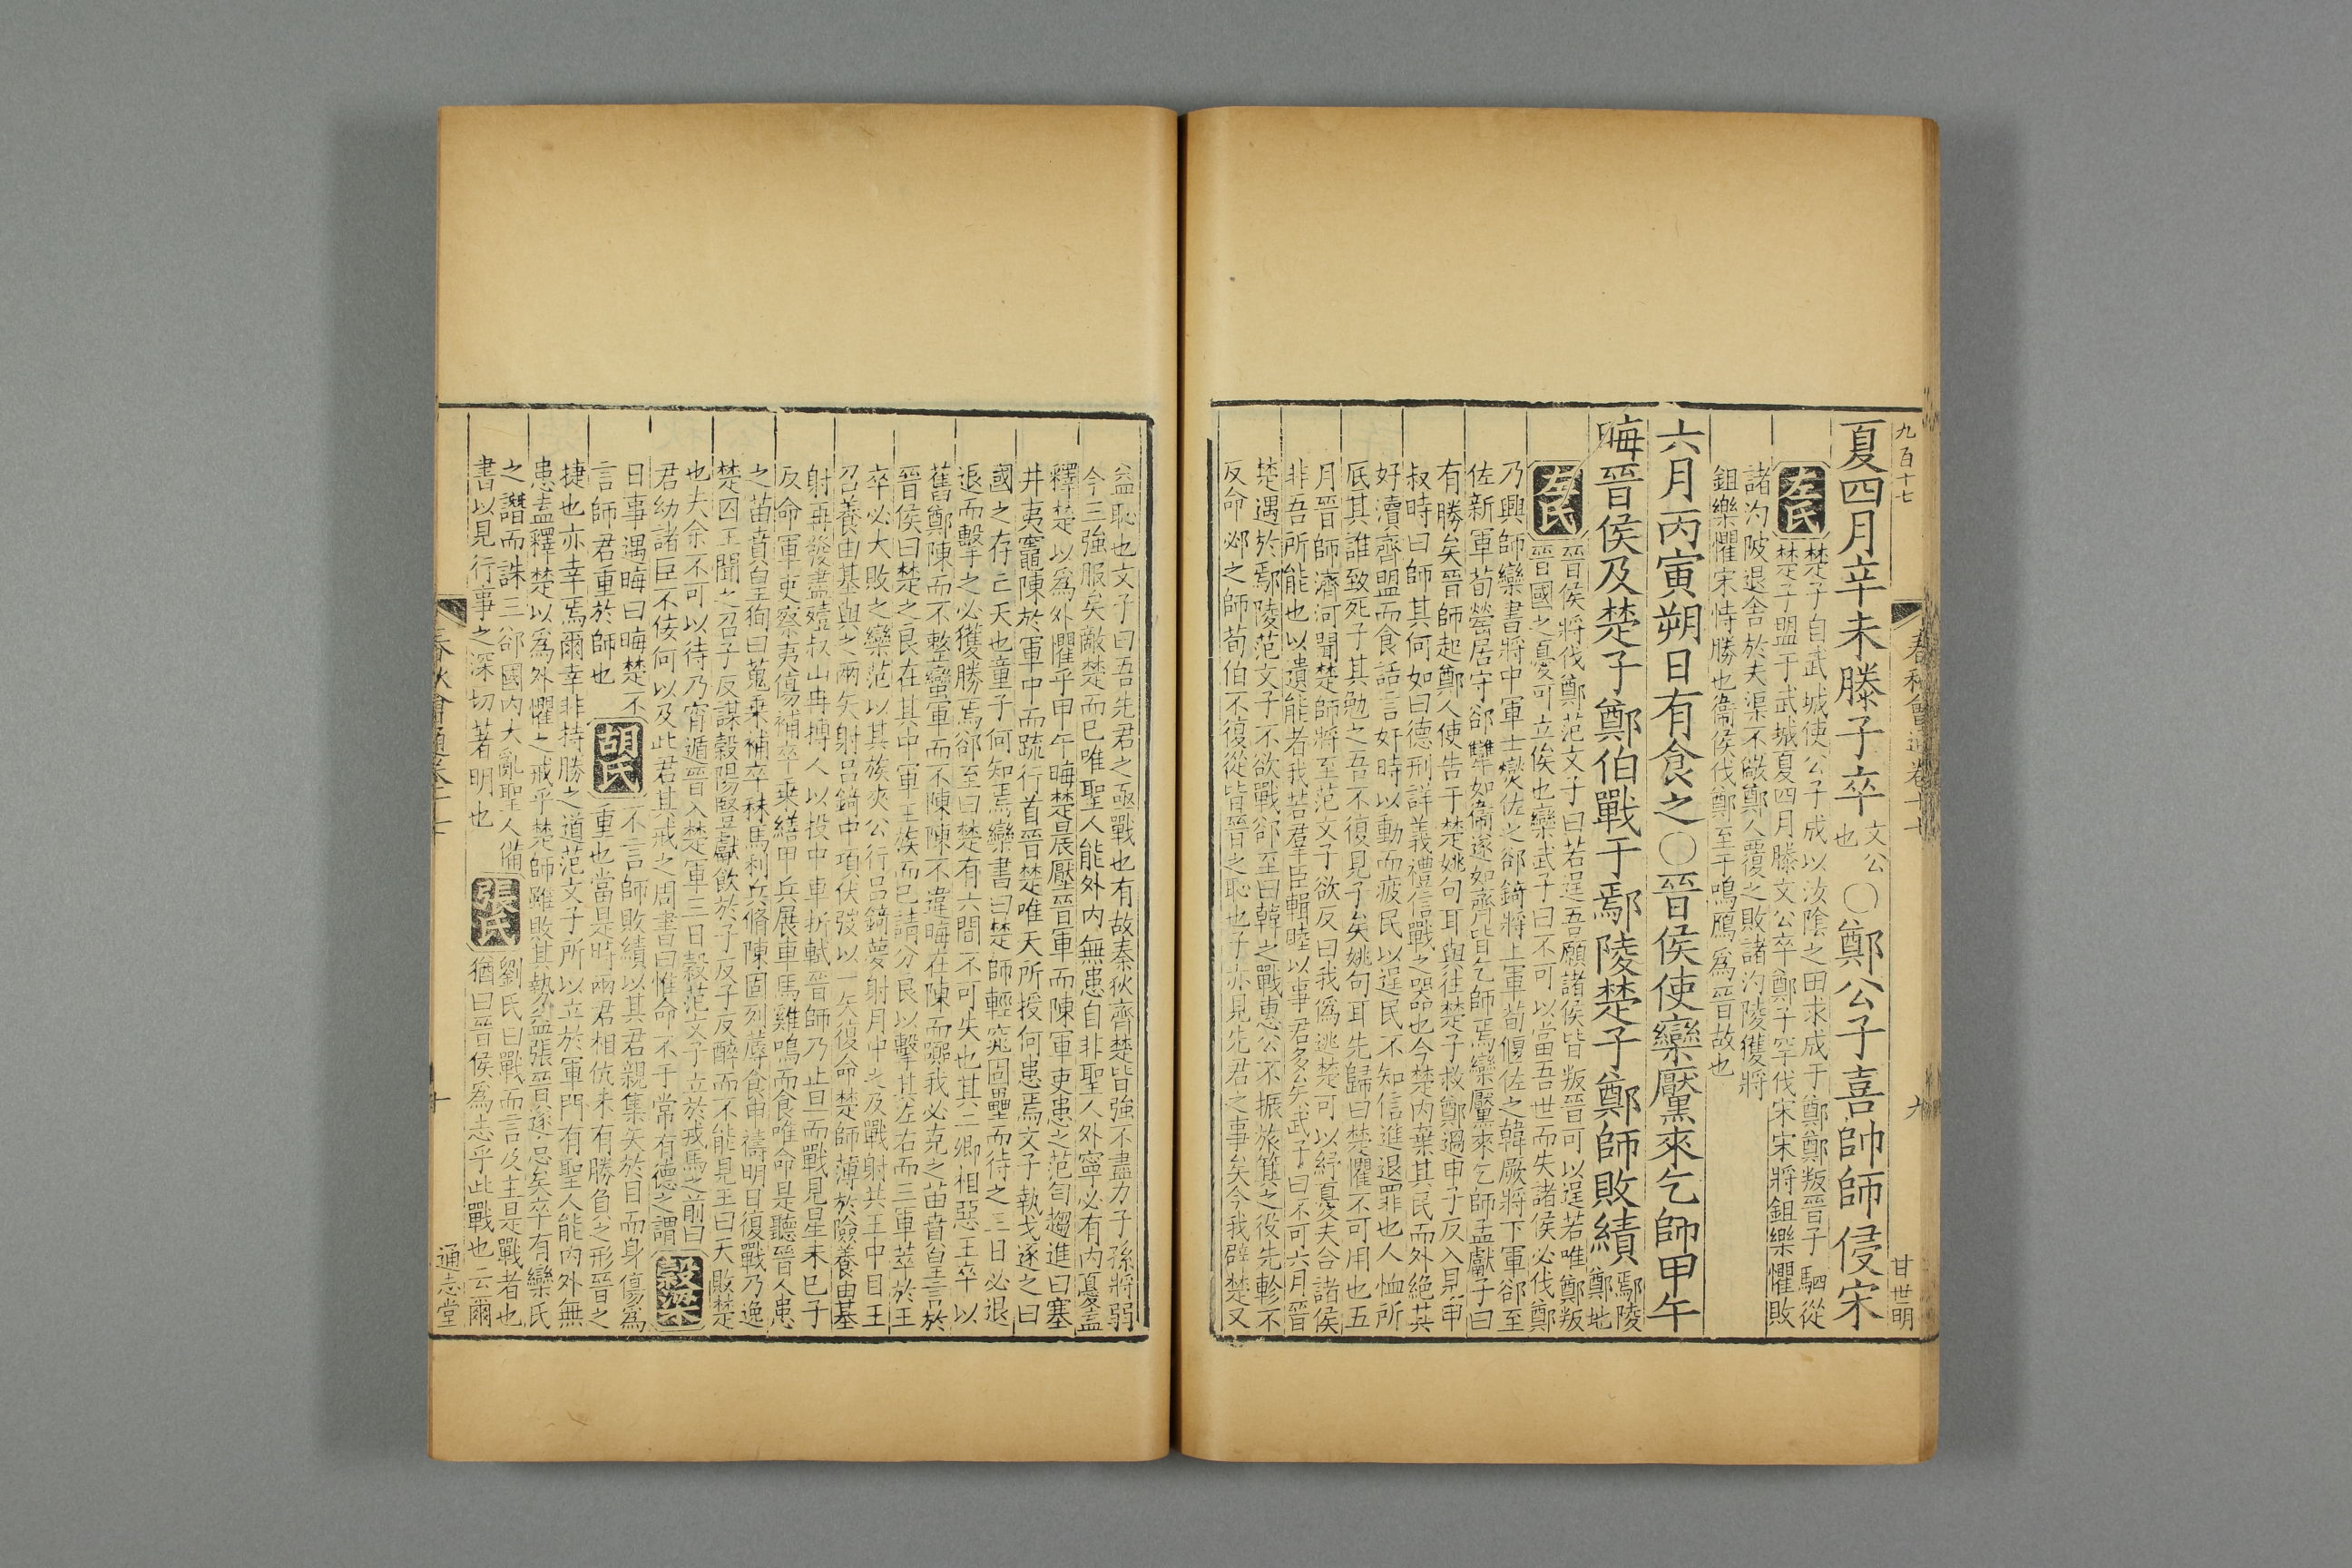 九百十七
春秋會通卷十七
九
甘世明
夏四月辛未滕子卒文公也〇鄭公子喜帥師侵宋
左氏楚子自武城使公子成以汝隂之田求成于鄭鄭叛晉子駟從
楚子盟于武城夏四月滕文公卒鄭子罕伐宋宋將鉏樂懼敗
諸汋陂退舍於夫渠不儆鄭人覆之敗諸汋陵獲將
鉏樂懼宋恃勝也衞侯伐鄭至于鳴鴈爲晉故也
六月丙寅朔日有食之〇晉侯使欒黶來乞師甲午
晦晉侯及楚子鄭伯戰于鄢陵楚子鄭師敗績鄢陵鄭地
左氏晉侯將伐鄭范文子曰若逞吾願諸侯皆叛晉可以逞若唯鄭叛
晉國之憂可立俟也欒武子曰不可以當吾世而失諸侯必伐鄭
乃興師欒書將中軍士燮佐之郤錡將上軍荀偃佐之韓厥將下軍郤至
佐新軍荀罃居守郤犫如衞遂如齊皆乞師焉欒黶來乞師孟獻子曰
有勝矣晉師起鄭人使告于楚姚句耳與往楚子救鄭過申子反入見申
叔時曰師其何如曰德刑詳義禮信戰之器也今楚内棄其民而外絶其
好瀆齊盟而食話言奸時以動而疲民以逞民不知信進退罪也人恤所
厎其誰致死子其勉之吾不復見子矣姚句耳先歸曰楚懼不可用也五
月晉師濟河聞楚師將至范文子欲反曰我僞逃楚可以紓憂夫合諸侯
非吾所能也以遺能者我若羣臣輯睦以事君多矣武子曰不可六月晉
楚遇於鄢陵范文子不欲戰郤至曰韓之戰惠公不振旅箕之役先軫不
反命邲之師荀伯不復從皆晉之恥也子亦見先君之事矣今我辟楚又
益恥也文子曰吾先君之亟戰也有故秦狄齊楚皆強不盡力子孫將弱
今三強服矣敵楚而已唯聖人能外内無患自非聖人外寧必有内憂盍
釋楚以爲外懼乎甲午晦楚晨壓晉軍而陳軍吏患之范匄趨進曰塞
井夷竈陳於軍中而疏行首晉楚唯天所授何患焉文子執戈逐之曰
國之存亡天也童子何知焉欒書曰楚師輕窕固壘而待之三日必退
退而擊之必獲勝焉郤至曰楚有六間不可失也其二卿相惡王卒以
舊鄭陳而不整蠻軍而不陳陳不違晦在陳而嘂我必克之苗賁皇言於
晉侯曰楚之良在其中軍王族而已請分良以擊其左右而三軍萃於王
卒必大敗之欒范以其族夾公行呂錡夢射月中之及戰射共王中目王
召養由基與之兩矢射呂錡中項伏弢以一矢復命楚師薄於險養由基
射再發盡殪叔山冉搏人以投中車折軾晉師乃止旦而戰見星未已子
反命軍吏察夷傷補卒乘繕甲兵展車馬雞鳴而食唯命是聽晉人患
之苗賁皇徇曰蒐乘補卒秣馬利兵脩陳固列蓐食申禱明日復戰乃逸
楚囚王聞之召子反謀穀陽竪獻飲於子反子反醉而不能見王曰天敗楚
也夫余不可以待乃宵遁晉入楚軍三日穀范文子立於戎馬之前曰
君幼諸臣不佞何以及此君其戒之周書曰惟命不于常有德之謂穀梁
日事遇晦曰晦楚不言師敗績以其君親集矢於目而身傷爲
言師君重於師也胡氏不重也當是時兩君相伉未有勝負之形晉之
捷也亦幸焉爾幸非持勝之道范文子所以立於軍門有聖人能内外無
患盍釋楚以爲外懼之戒乎楚師雖敗其埶益張晉遂怠矣卒有欒氏
之譖而誅三郤國内大亂聖人備張氏劉氏曰戰而言及主是戰者也
書以見行事之深切著明也猶曰晉侯爲志乎此戰也云爾
春秋會通卷十七
十
通志堂